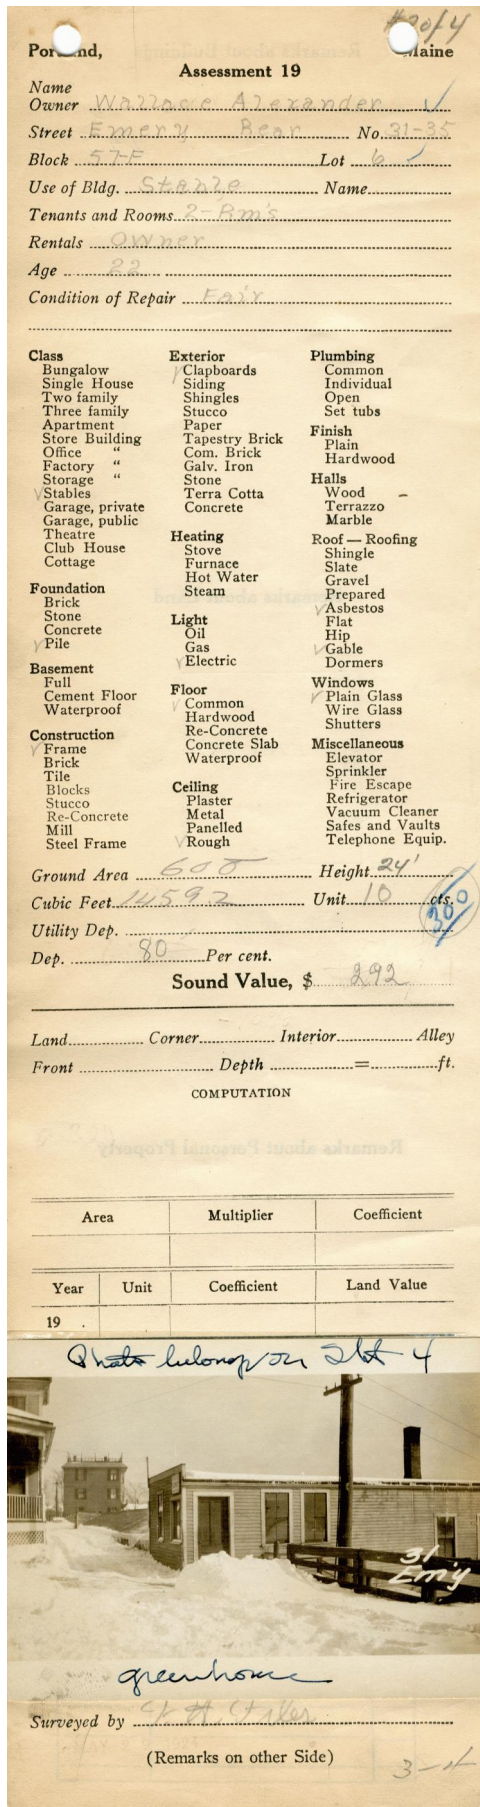 #2 of 4
Portland, Maine
Assessment 19
Name
Owner Wallace Alexander ✓
Street Emery Rear No. 31-35
Block 57-F Lot 6 ✓
Use of Bldg. Stable Name
Tenants and Rooms 2-Rm's
Rentals Owner
Age 22
Condition of Repair Fair
Class
Bungalow
Single House
Two family
Three family
Apartment
Store Building
Office "
Factory "
Storage "
✓ Stables
Garage, private
Garage, public
Theatre
Club House
Cottage
Foundation
Brick
Stone
Concrete
✓ Pile
Basement
Full
Cement Floor
Waterproof
Construction
✓ Frame
Brick
Tile
Blocks
Stucco
Re-Concrete
Mill
Steel Frame
Exterior
✓ Clapboards
Siding
Shingles
Stucco
Paper
Tapestry Brick
Com. Brick
Galv. Iron
Stone
Terra Cotta
Concrete
Heating
Stove
Furnace
Hot Water
Steam
Light
Oil
Gas
✓ Electric
Floor
✓ Common
Hardwood
Re-Concrete
Concrete Slab
Waterproof
Ceiling
Plaster
Metal
Panelled
✓ Rough
Plumbing
Common
Individual
Open
Set tubs
Finish
Plain
Hardwood
Halls
Wood –
Terrazzo
Marble
Roof — Roofing
Shingle
Slate
Gravel
Prepared
✓ Asbestos
Flat
Hip
✓ Gable
Dormers
Windows
✓ Plain Glass
Wire Glass
Shutters
Miscellaneous
Elevator
Sprinkler
Fire Escape
Refrigerator
Vacuum Cleaner
Safes and Vaults
Telephone Equip.
Ground Area 608 Height 24'
Cubic Feet 14592 Unit 10 cts.
300
Utility Dep.
Dep. 80 Per cent.
Sound Value, $ 292
Land Corner Interior Alley
Front Depth = ft.
COMPUTATION
Area Multiplier Coefficient
Year Unit Coefficient Land Value
19 .
Photo belongs on
31
Em'y
greenhouse
Surveyed by
(Remarks on other Side)